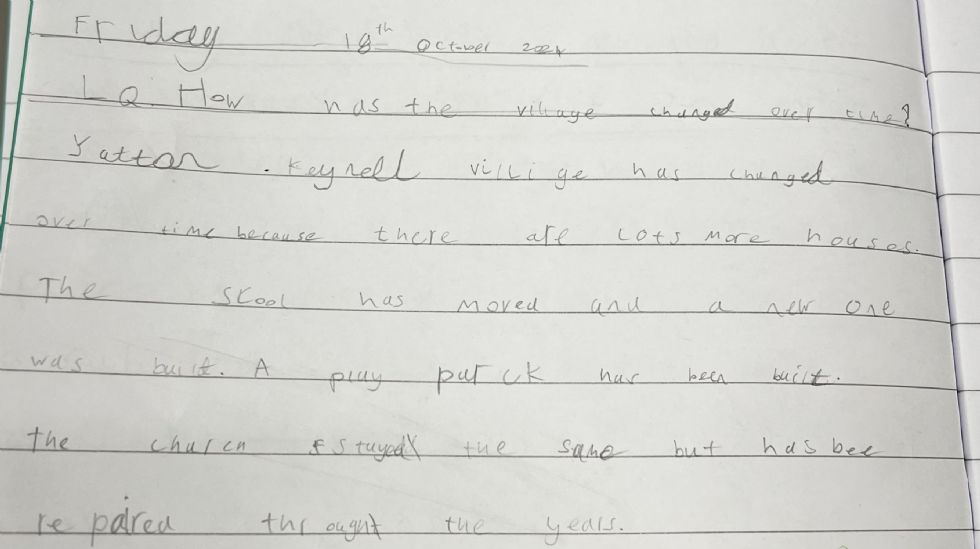 Friday 18th October 2024
LQ. How has the village changed over time?
Yatton . Keynell villige has changed
over time because there are lots more houses.
The scool has moved and a new one
was built. A play parck has been built.
the church stayed the same but has bee
repaired throught the years.